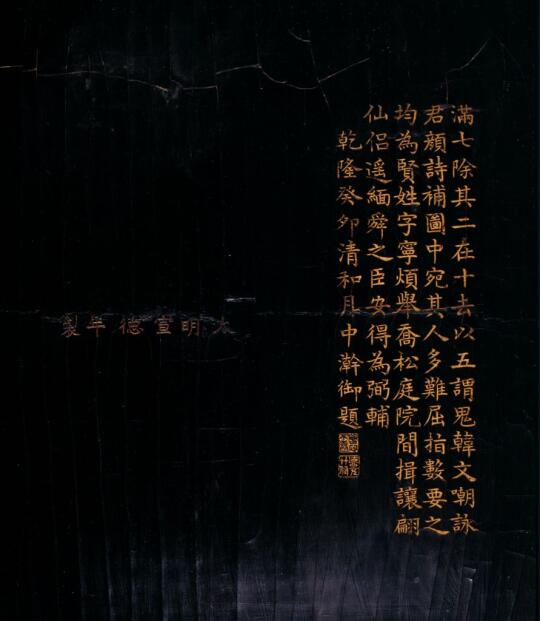 滿七除其二在十去以五謂鬼韓文嘲詠
君顏詩補圖中宛其人多難屈指數要之
均為賢姓字寧煩舉喬松庭院間揖讓翩
仙侶遥緬舜之臣安得為弼輔
乾隆癸夘清和月中澣御題
大明宣德年製